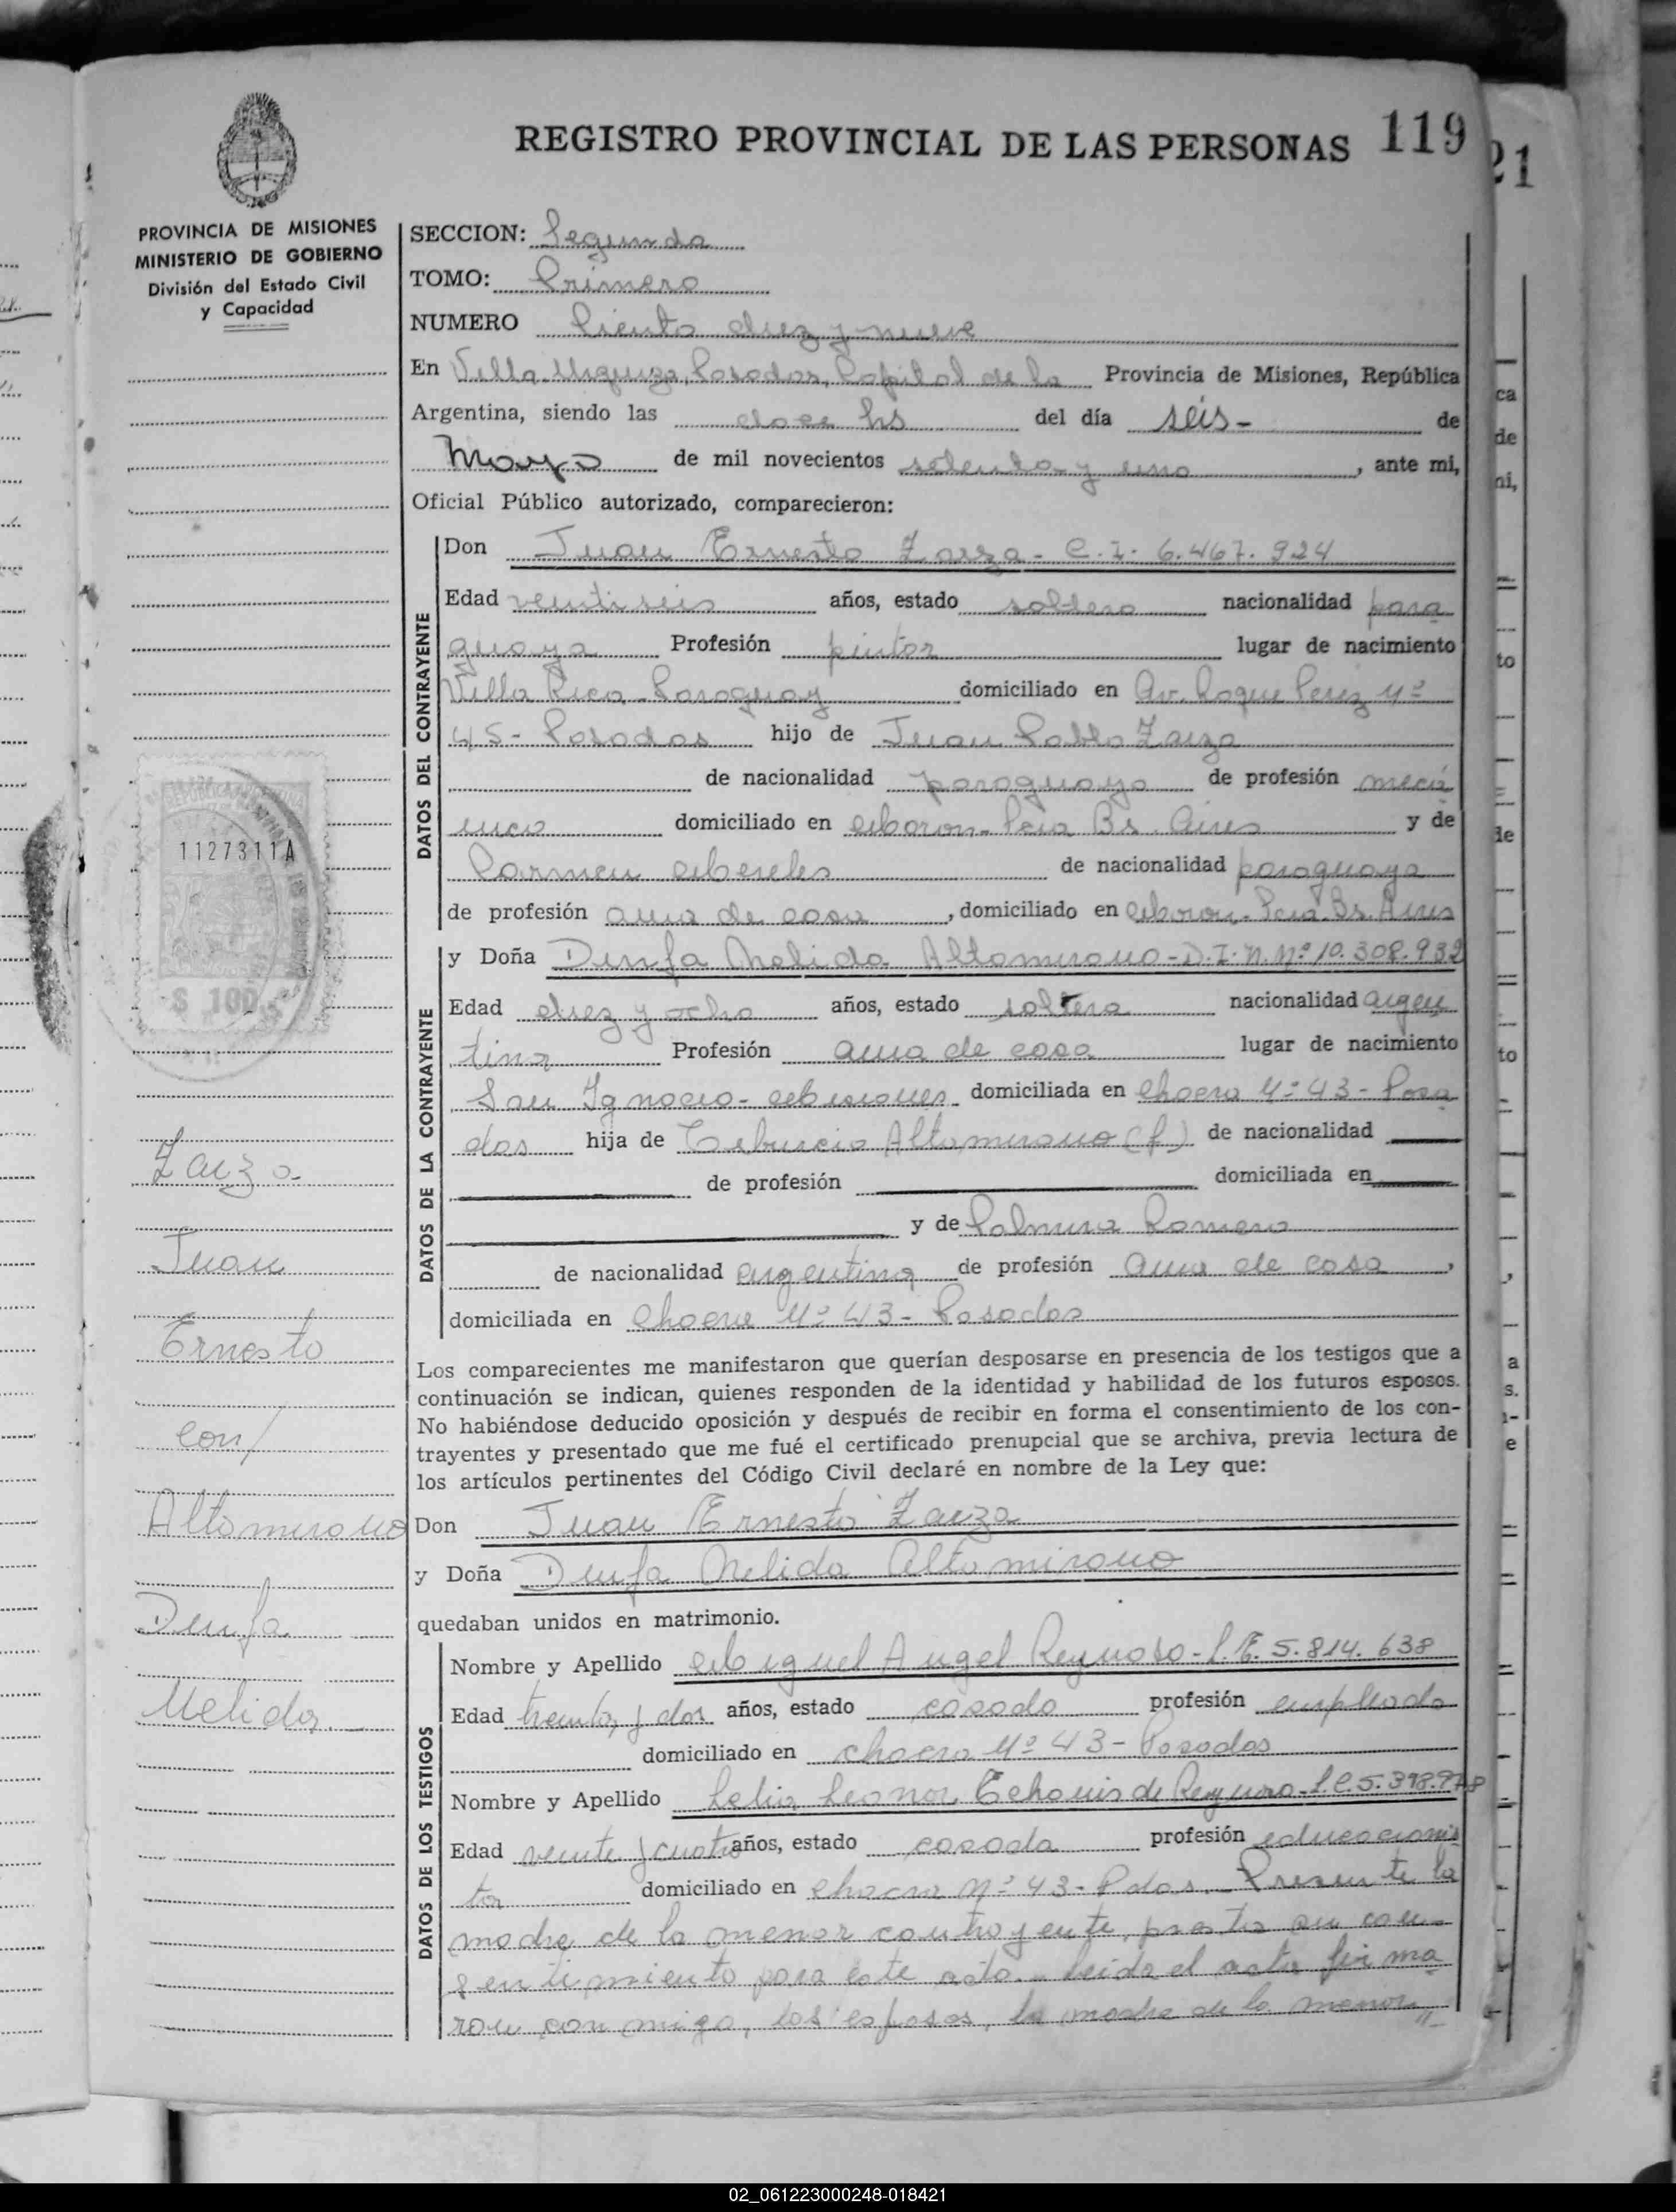 REGISTRO PROVINCIAL DE LAS PERSONAS 119
21
PROVINCIA DE MISIONES
MINISTERIO DE GOBIERNO
División del Estado Civil
y Capacidad
SECCION: Segunda
TOMO: Primero
NUMERO Ciento diez y nueve
En Villa Urquiza, Posadas, Capital de la Provincia de Misiones, República
Argentina, siendo las doce hs del día seis- de
Mayo de mil novecientos setenta y uno, ante mi,
Oficial Público autorizado, comparecieron:
DATOS DEL CONTRAYENTE
Don Juan Ernesto Zarza - C.I. 6.467.924
Edad veintiseis años, estado soltero nacionalidad para
guaya Profesión pintor lugar de nacimiento
Villa Rica - Paraguay domiciliado en Av. Roque Perez Nº
45 - Posadas hijo de Juan Pablo Zarza
de nacionalidad paraguaya de profesión mecá
nico domiciliado en Moron - Pcia Bs. Aires y de
Carmen de nacionalidad paraguaya
de profesión ama de casa, domiciliado en Moron - Pcia. Bs. Aires
DATOS DE LA CONTRAYENTE
y Doña Dunfa Nelida Altamirano - D.I.N. Nº 10.308.932
Edad diez y ocho años, estado soltera nacionalidad argen
tina Profesión ama de casa lugar de nacimiento
San Ignacio - Misiones domiciliada en Chacra Nº 43 - Posa
das hija de Tiburcio Altamirano (f) de nacionalidad
de profesión domiciliada en
y de Palmira Romero
de nacionalidad argentina de profesión ama de casa,
domiciliada en Chacra Nº 43 - Posadas
Los comparecientes me manifestaron que querían desposarse en presencia de los testigos que a
continuación se indican, quienes responden de la identidad y habilidad de los futuros esposos.
No habiéndose deducido oposición y después de recibir en forma el consentimiento de los con-
trayentes y presentado que me fué el certificado prenupcial que se archiva, previa lectura de
los artículos pertinentes del Código Civil declaré en nombre de la Ley que:
Don Juan Ernesto Zarza
y Doña Dunfa Nelida Altamirano
quedaban unidos en matrimonio.
DATOS DE LOS TESTIGOS
Nombre y Apellido Miguel Angel Reynoso - L.E. 5.814.638
Edad treinta y dos años, estado casado profesión empleado
domiciliado en chacra Nº 43 - Posadas
Nombre y Apellido Leonor de Reynoso - L.C. 5.398.978
Edad veinte y cuatro años, estado casada profesión educacionis
ta domiciliado en chacra Nº 43 - Pdas. - Presente la
madre de la menor contrayente, presta su con-
sentimiento para este acto. - Leida el acta firma
ron conmigo, los esposos, la madre de la menor,,
1127311A
REPUBLICA ARGENTINA
$ 100
Zarza
Juan
Ernesto
con/
Altamirano
Dunfa
Nelida
02_061223000248-018421